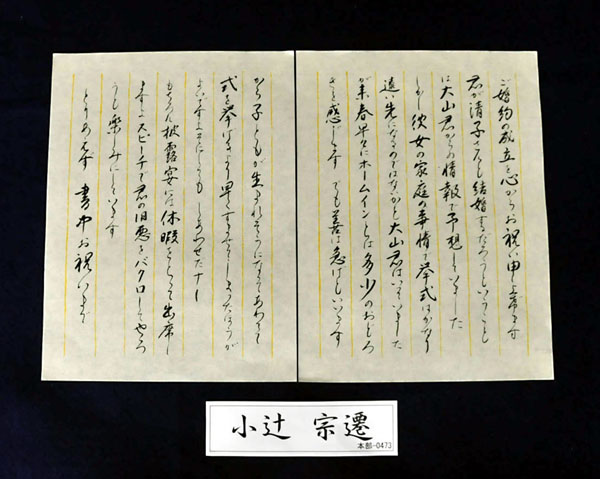 ご婚約の成立を心からお祝い申し上げます
君が清子さんと結婚するだろうということは
は大山君からの情報で予想していました
しかし彼女の家庭の事情で挙式はかなり
遠い先になるのではないかと大山君はいっていました
が来春早々にホームインとは多少のおどろ
きを感じます でも善は急げともいいます
から子どもが生まれそうになってあわてて
式を挙げるより早くするにこしたことはない
よいですよ それにしても しあわせだナー
もちろん披露宴には休暇をとって出席し
ますよ スピーチで君の旧悪をバクロしてやろ
うと楽しみにしています
とりあえず 書中お祝いまで
小辻 宗遷
本部-0473